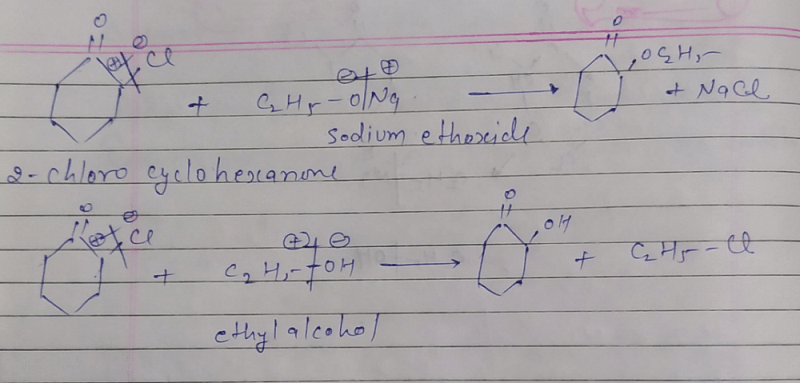 O O
⊕ ⊖ Cl OC2H5
+ C2H5-O/Na ⊖ ⊕ → + NaCl
sodium ethoxide
2-chloro cyclohexanone
O O
⊕ ⊖ Cl OH
+ C2H5-OH ⊕ ⊖ → + C2H5-Cl
ethyl alcohol